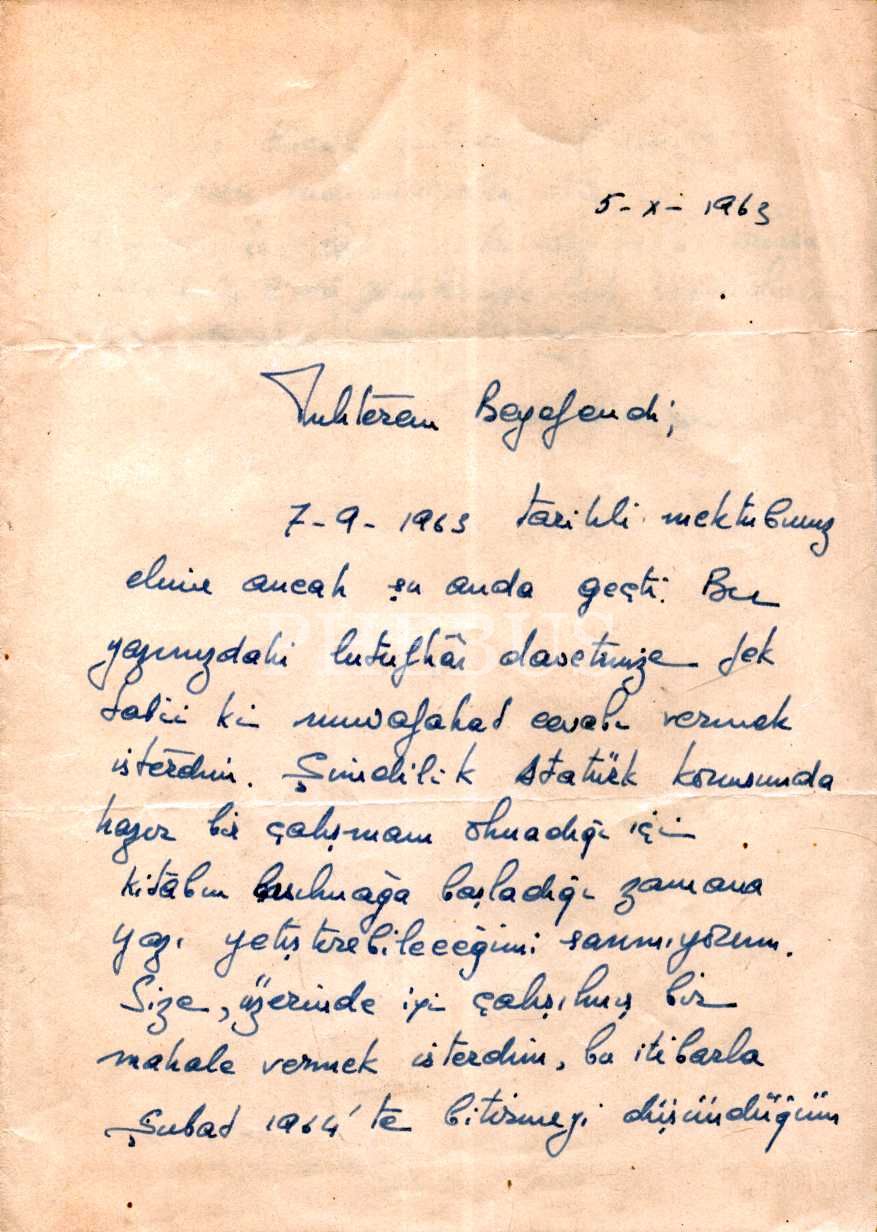 5-X-1963
Muhterem Beyefendi;
7-9-1963 tarihli mektubunuz
elime ancak şu anda geçti. Bu
yazınızdaki lutufkâr davetinize tek
tabii ki muvafakat cevabı vermek
isterdim. Şimdilik Atatürk konusunda
hazır bir çalışmam olmadığı için
kitâbın basılmağa başladığı zamana
yazı yetiştirebileceğimi sanmıyorum.
Size, üzerinde iyi çalışılmış bir
makale vermek isterdim, bu itibarla
Şubat 1964'te bitirmeyi düşündüğüm
PHEBUS